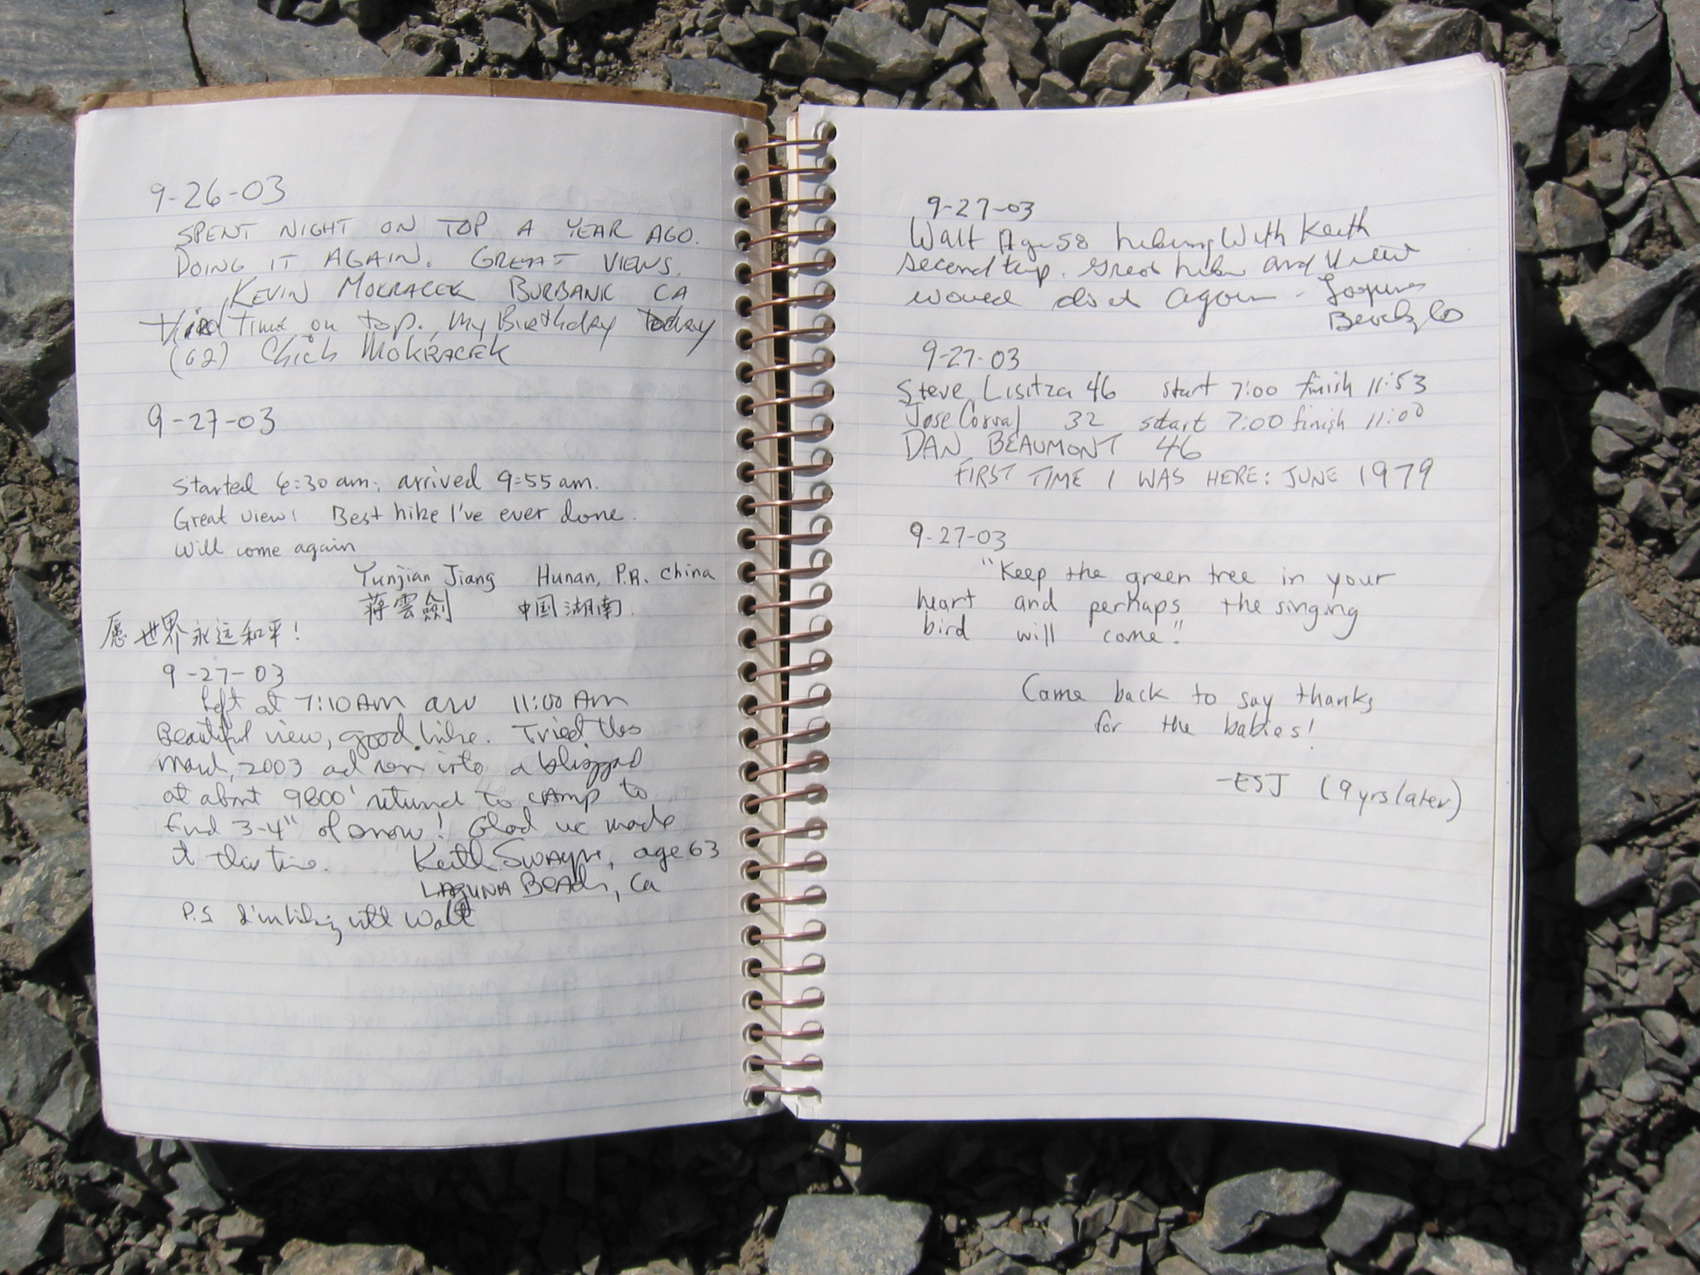 9-26-03
SPENT NIGHT ON TOP A YEAR AGO.
DOING IT AGAIN. GREAT VIEWS.
KEVIN MOKRACEK BURBANK CA
third Time on top. My Birthday today
(62) Chick MOKRACEK
9-27-03
Started 6:30 am; arrived 9:55 am.
Great view! Best hike I've ever done.
will come again
Yunjian Jiang Hunan, P.R. China
蒋雲劍 中国湖南.
愿世界永远和平!
9-27-03
Left at 7:10 AM arv 11:00 AM
Beautiful view, good hike. Tried this
March, 2003 ad ran into a blizzard
at about 9800' returnd to camp to
find 3-4" of snow! Glad we made
it this time. Keith Swayne, age 63
LAGUNA Beach, Ca
P.S I'm hiking with Walt
9-27-03
Walt Age 58 hiking With Keith
second trip. Great hike and View
would do it again - Laguna
Beach, Ca
9-27-03
Steve Lisitza 46 start 7:00 finish 11:53
Jose Corral 32 start 7:00 finish 11:00
DAN BEAUMONT 46
FIRST TIME I WAS HERE: JUNE 1979
9-27-03
"Keep the green tree in your
heart and perhaps the singing
bird will come."
Came back to say thanks
for the babies!
-ESJ (9 yrs later)